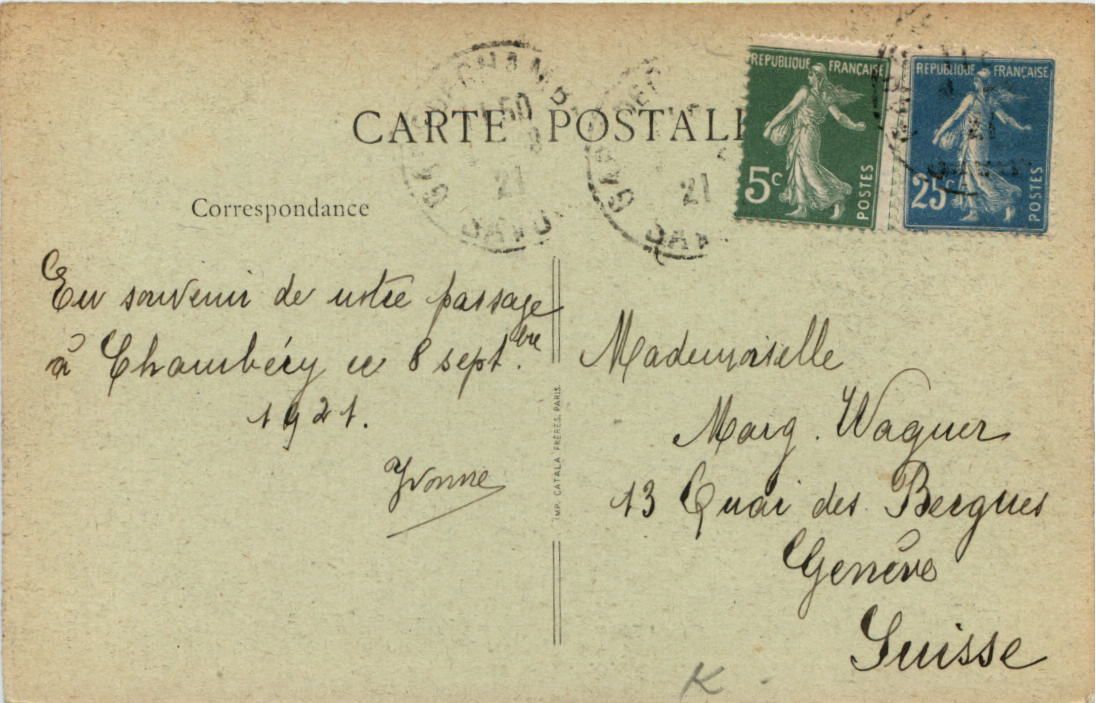 CARTE POSTALE
RÉPUBLIQUE FRANÇAISE
5c
POSTES
RÉPUBLIQUE FRANÇAISE
25c
POSTES
21
21
21
Correspondance
En souvenir de notre passage
à Chambéry ce 8 sept.bre
1921.
Yvonne
IMP. CATALA FRÈRES, PARIS.
Mademoiselle
Marg. Wagner
13 Quai des Bergues
Genève
Suisse
K